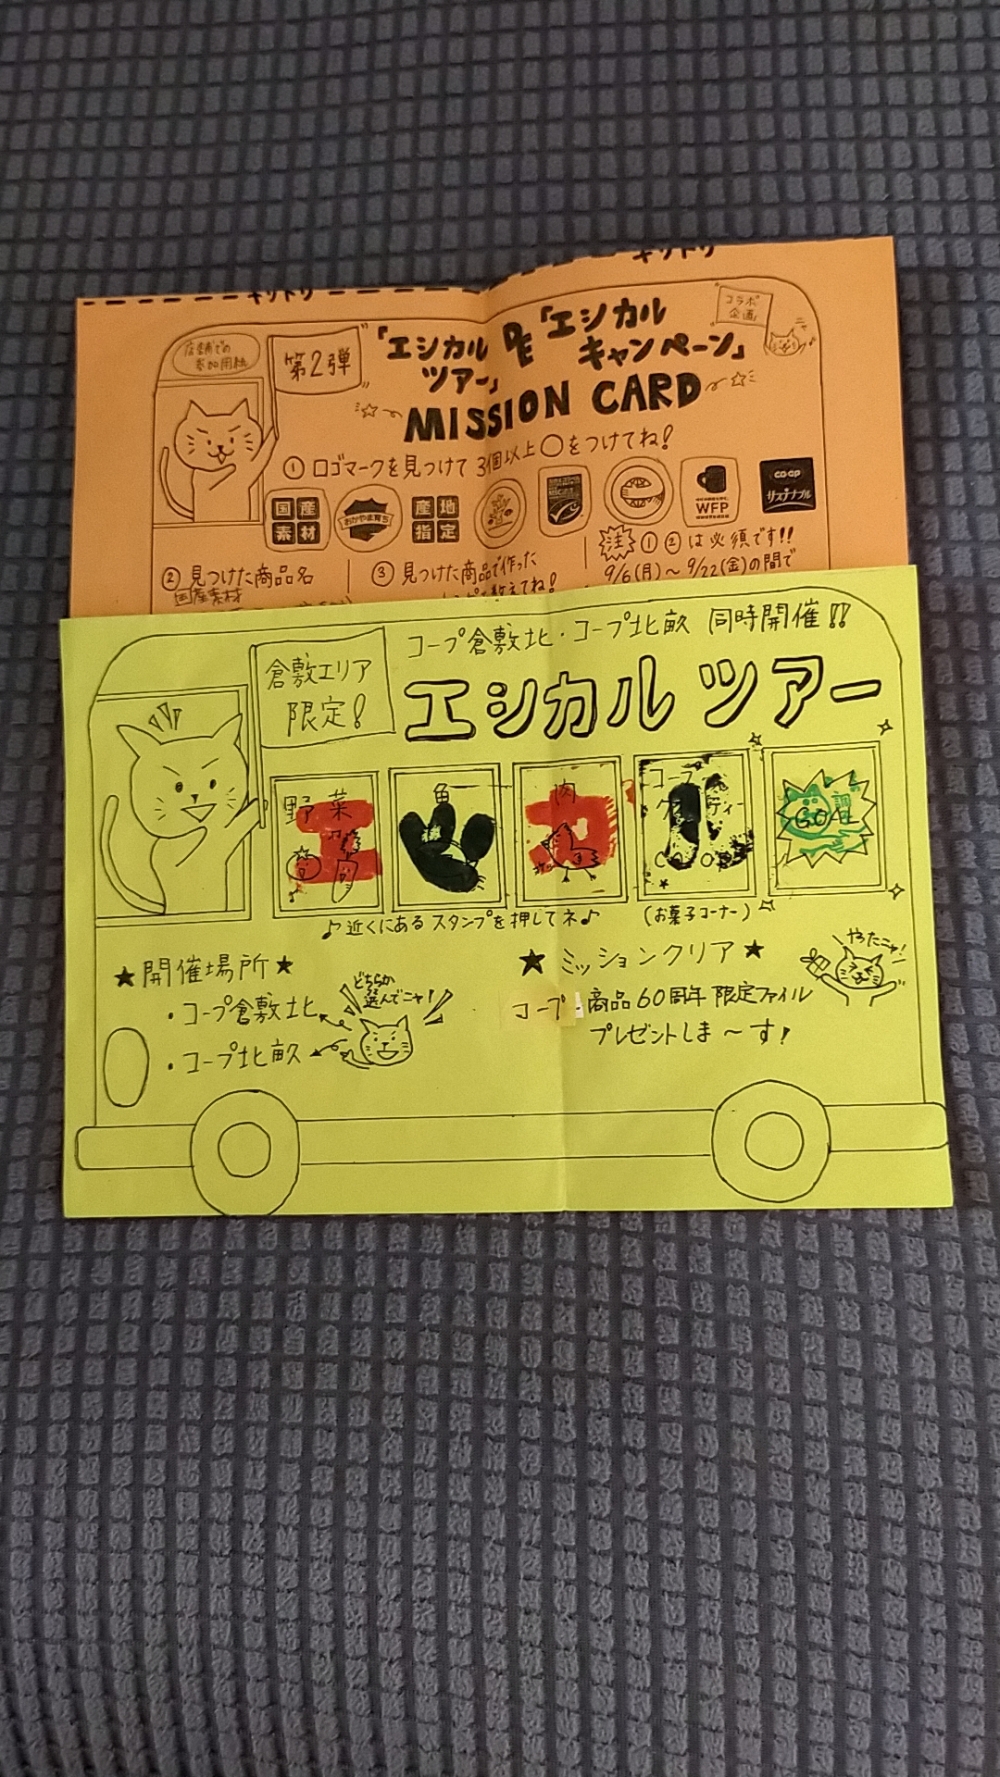 キリトリ
キリトリ
店舗での
参加用紙
第2弾
「エシカルツアー」
DE
「エシカルキャンペーン」
コラボ
企画
MISSION CARD
① ロゴマークを見つけて 3個以上〇をつけてね!
国産
素材
おかやま育ち
産地
指定
WFP
CO・OP
サステナブル
② 見つけた商品名
国産素材
③ 見つけた商品で作った
教えてね!
注 ① ② は必須です!!
9/6(月)〜9/22(金)の間で
コープ倉敷北・コープ北畝 同時開催!!
倉敷エリア
限定!
エシカル ツアー
野菜
エ
魚
シ
肉
カ
コープ
ル
GOAL
♪近くにある スタンプを押してネ♪
(お菓子コーナー)
★開催場所★
・コープ倉敷北
・コープ北畝
どちらか
選んでニャ!
★ミッションクリア★
コープ商品60周年 限定ファイル
プレゼントしま〜す!
やったニャ!